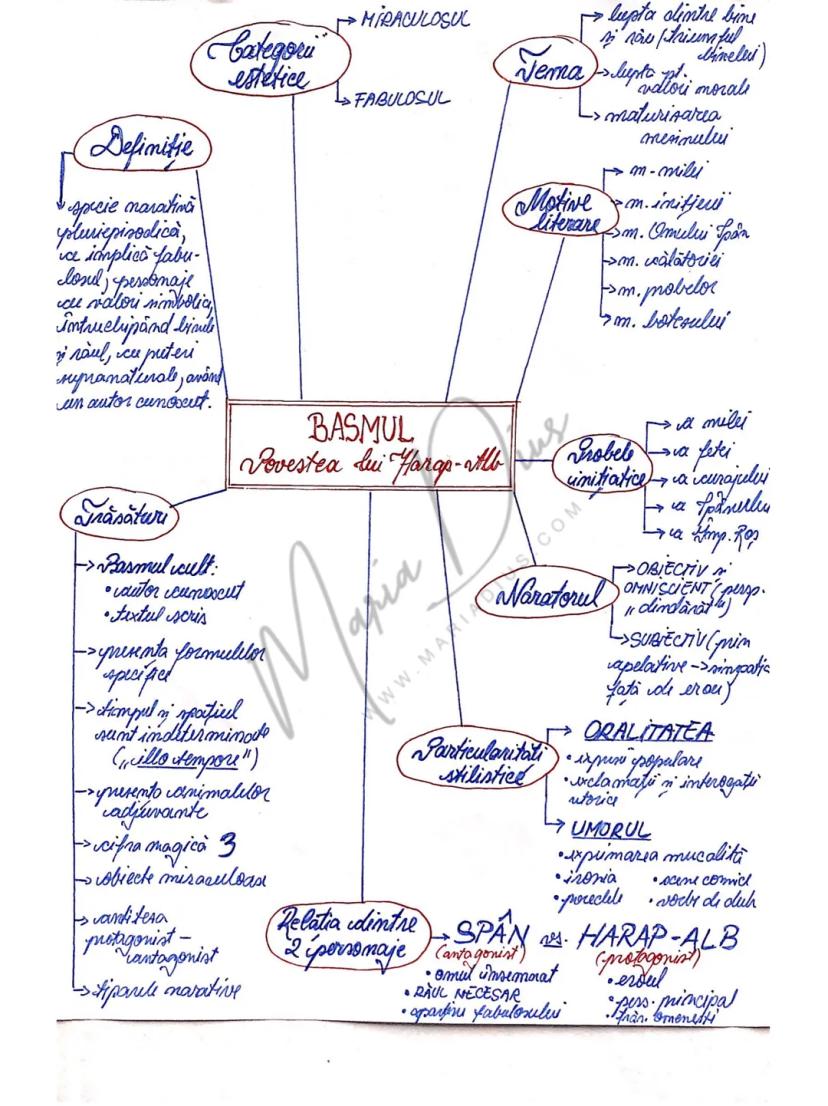 Categorii
estetice
MIRACULOSUL
FABULOSUL
Tema
lupta dintre bine
și rău (triumful
binelui)
lupta pt.
valori morale
maturizarea
mezinului
Definiție
specie narativă
pluriepisodică,
ce implică fabu-
losul, personaje
cu valori simbolice,
întruchipând binele
și răul, cu puteri
supranaturale, având
un autor cunoscut.
Motive
literare
m. milei
m. inițierii
m. Omului Spân
m. călătoriei
m. probelor
m. botezului
BASMUL
Povestea lui Harap-Alb
Probele
inițiatice
a milei
a fetei
a curajului
a Spânului
a Împ. Roș
Trăsături
Basmul cult:
• autor cunoscut
• textul scris
prezența formulelor
specifice
timpul și spațiul
sunt indeterminate
("illo tempore")
prezența animalelor
adjuvante
cifra magică 3
obiecte miraculoase
antiteza
protagonist –
antagonist
tiparele narative
Naratorul
OBIECTIV și
OMNISCIENT (persp.
"dindărăt")
SUBIECTIV (prin
apelative -> simpatia
față de erou)
Particularități
stilistice
ORALITATEA
• expresii populare
• exclamații și interogații
retorice
UMORUL
• exprimarea mucalită
• ironia
• scene comice
• poreclele
• vorbe de duh
Relația dintre
2 personaje
SPÂN vs. HARAP-ALB
(antagonist)
(protagonist)
• omul însemnat
• RĂUL NECESAR
• aparține fabulosului
• eroul
• pers. principal
• trăs. omenești
Maria Dius
WWW.MARIADIUS.COM